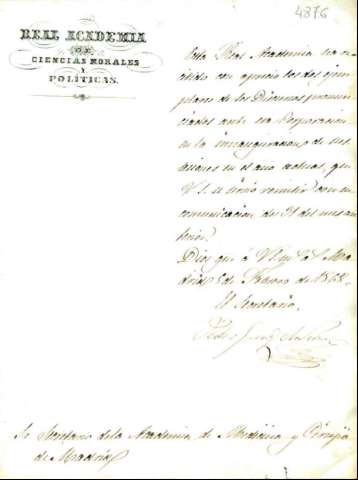 4376
REAL ACADEMIA
DE
CIENCIAS MORALES
Y
POLITICAS.
Esta Real Academia ha re-
cibido con aprecio los dos ejem-
plares de los Discursos pronun-
ciados ante esa Corporacion
en la inauguracion de sus
sesiones en el año actual, que
V. S. se sirvió remitir con su
comunicacion de 31 del mes an-
terior.
Dios gue á V. S. m.s a.s Ma-
drid de Febrero de 186
El Secretario,
Pedro
Sr Secretario de la Academia de Medicina y Cirugía
de Madrid